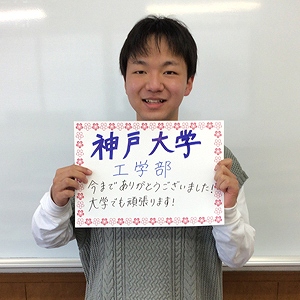 神戸大学
工学部
今までありがとうございました!
大学でも頑張ります!